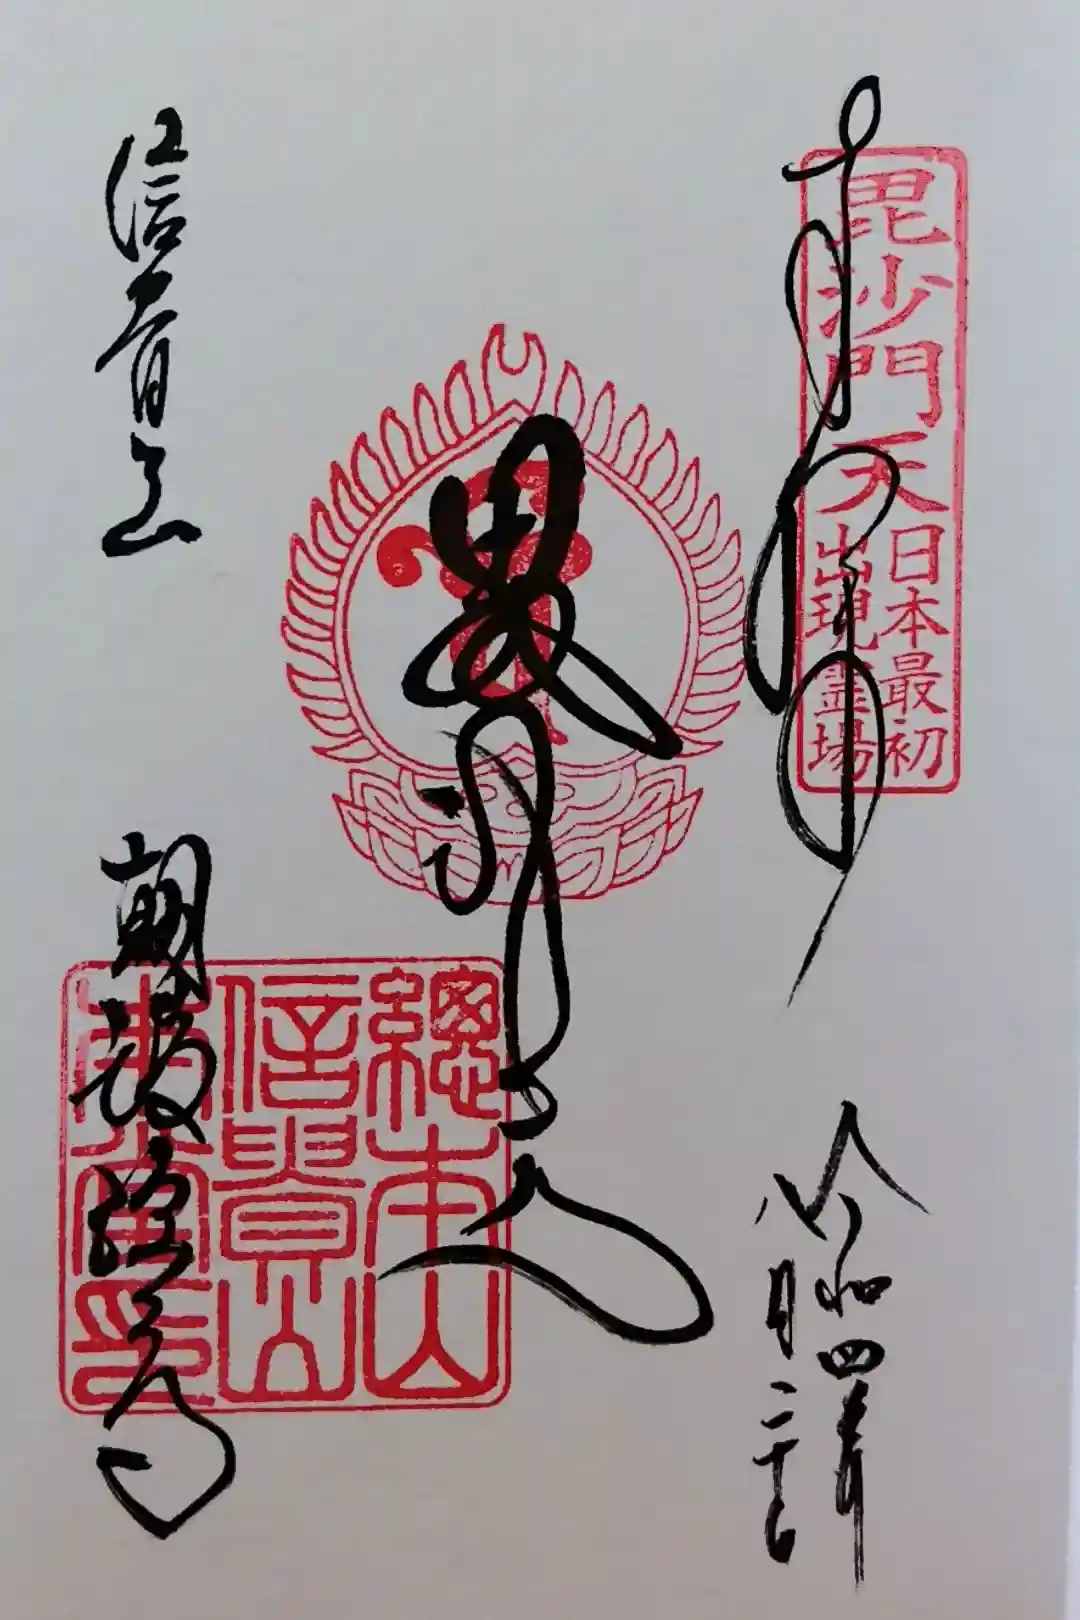 奉拝
毘沙門天
日本最初
出現霊場
令和四年
八月二十日
毘沙門天
信貴山
朝護孫子寺
總本山
信貴山
本堂印